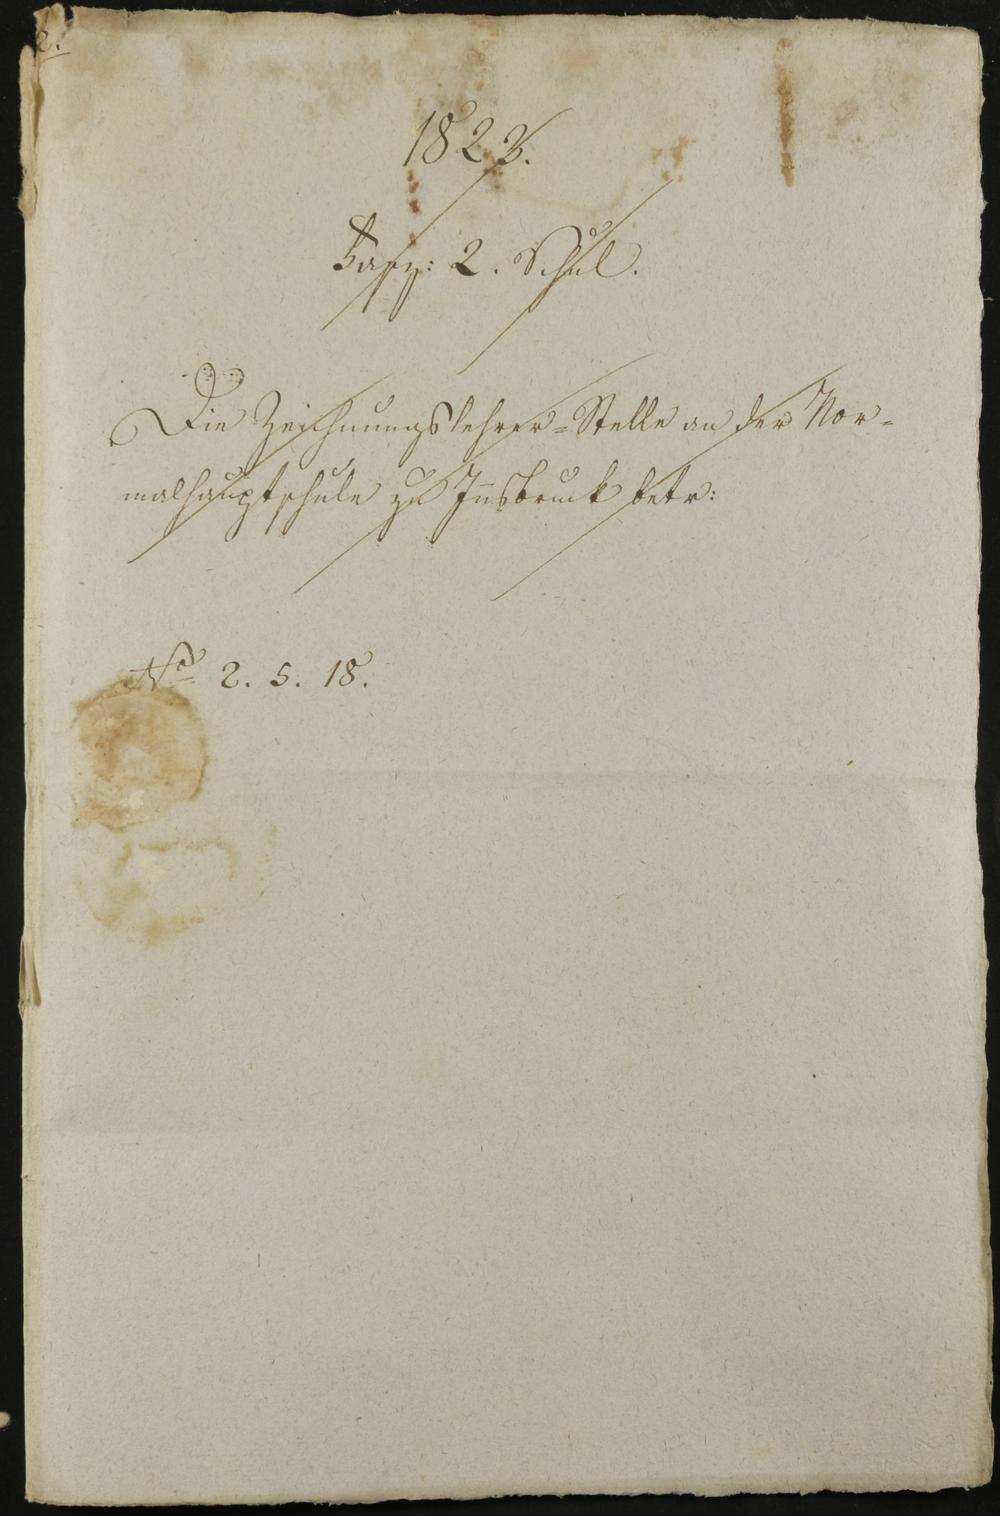 2.
1823.
Fasz: 2. Schul.
Die Zeichnungslehrer=Stelle an der Nor=
malhauptschule zu Innsbruck betr:
No 2. 5. 18.